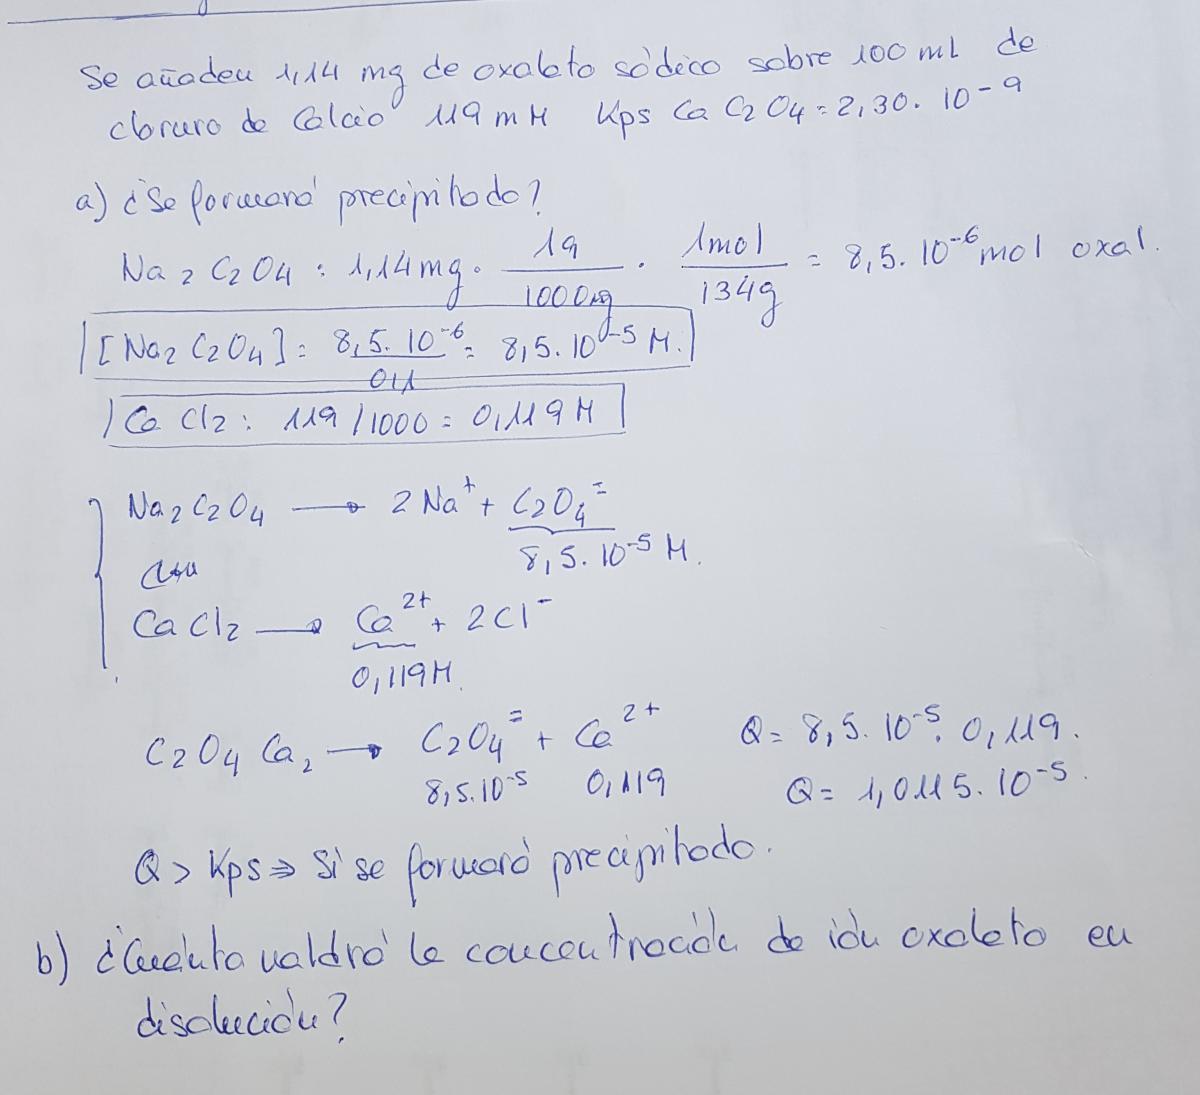 Se añaden 1,14 mg de oxalato sódico sobre 100 ml de
cloruro de Calcio 119 mM Kps Ca C2O4 = 2,30. 10-9
a) ¿Se formará precipitado?
Na2C2O4 : 1,14mg . 1g/1000mg . 1mol/134g = 8,5. 10⁻⁶ mol oxal.
[Na2C2O4] = 8,5. 10⁻⁶/0,1 = 8,5. 10⁻⁵ M.
CaCl2 : 119/1000 = 0,119 M
Na2C2O4 → 2Na⁺ + C2O4⁼
8,5. 10⁻⁵ M.
CaCl2 → Ca²⁺ + 2Cl⁻
0,119M.
C2O4Ca2 → C2O4⁼ + Ca²⁺ Q = 8,5. 10⁻⁵. 0,119.
8,5.10⁻⁵ 0,119 Q = 1,0115. 10⁻⁵.
Q > Kps ⇒ Si se formará precipitado.
b) ¿Cuánto valdrá la concentración de ión oxalato en
disolución?